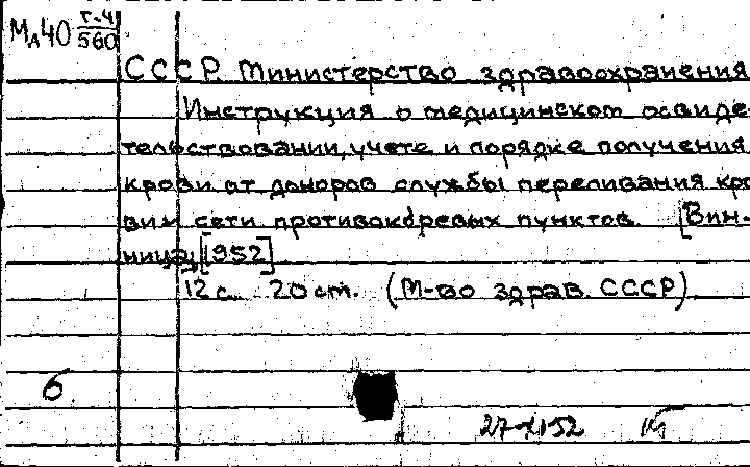 Мл40 г-4/560
СССР. Министерство здравоохранения
Инструкция о медицинском освиде-
тельствовании, учете и порядке получения
крови от доноров службы переливания кро-
ви и сети противокоревых пунктов. [Вин-
ница, [1952]
12 с. 20 см. (М-во здрав. СССР)
б